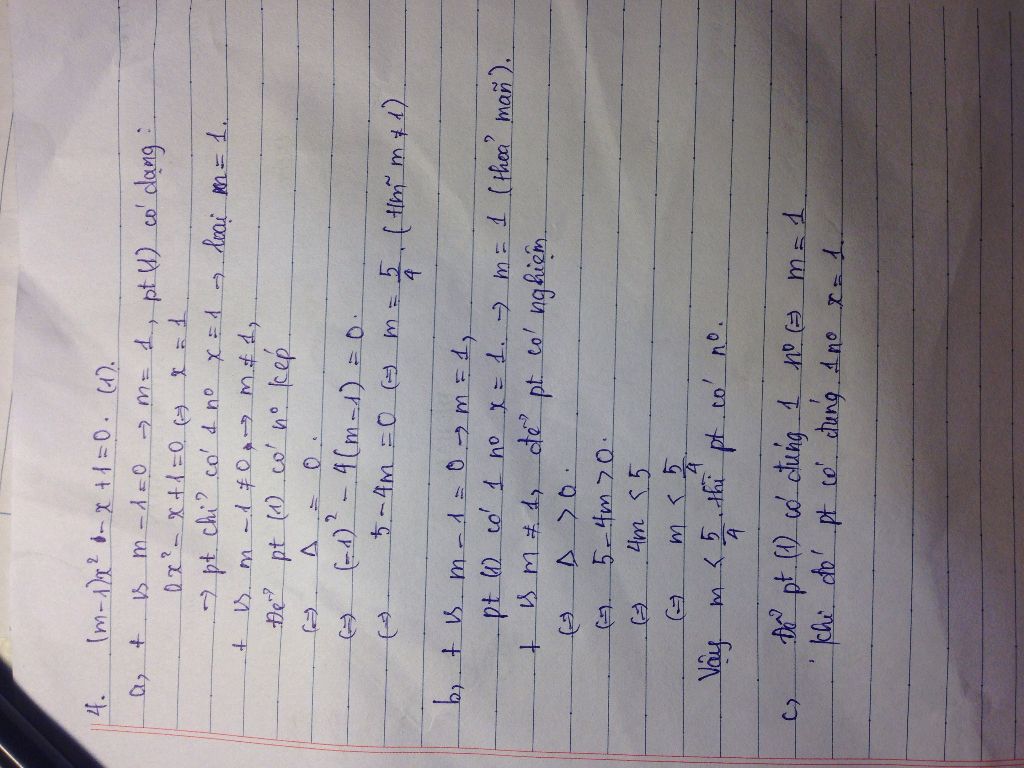 4. (m-1)x² - x + 1 = 0. (1).
a, + vs m - 1 = 0 → m = 1, pt (1) có dạng:
0x² - x + 1 = 0 (=) x = 1
→ pt chỉ có 1 nº x = 1 → loại m = 1.
+ vs m - 1 ≠ 0 → m ≠ 1,
Để pt (1) có nº kép
(=) Δ = 0.
(=) (-1)² - 4(m-1) = 0.
(=) 5 - 4m = 0 (=) m = 5/4. (tmđ m ≠ 1)
b, + vs m - 1 = 0 → m = 1,
pt (1) có 1 nº x = 1. → m = 1 (thoả mãn).
+ vs m ≠ 1, để pt có nghiệm
(=) Δ > 0.
(=) 5 - 4m > 0
(=) 4m < 5
(=) m < 5/4
Vậy m < 5/4 thì pt có nº.
c, Để pt (1) có đúng 1 nº (=) m = 1
khi đó pt có đúng 1 nº x = 1.